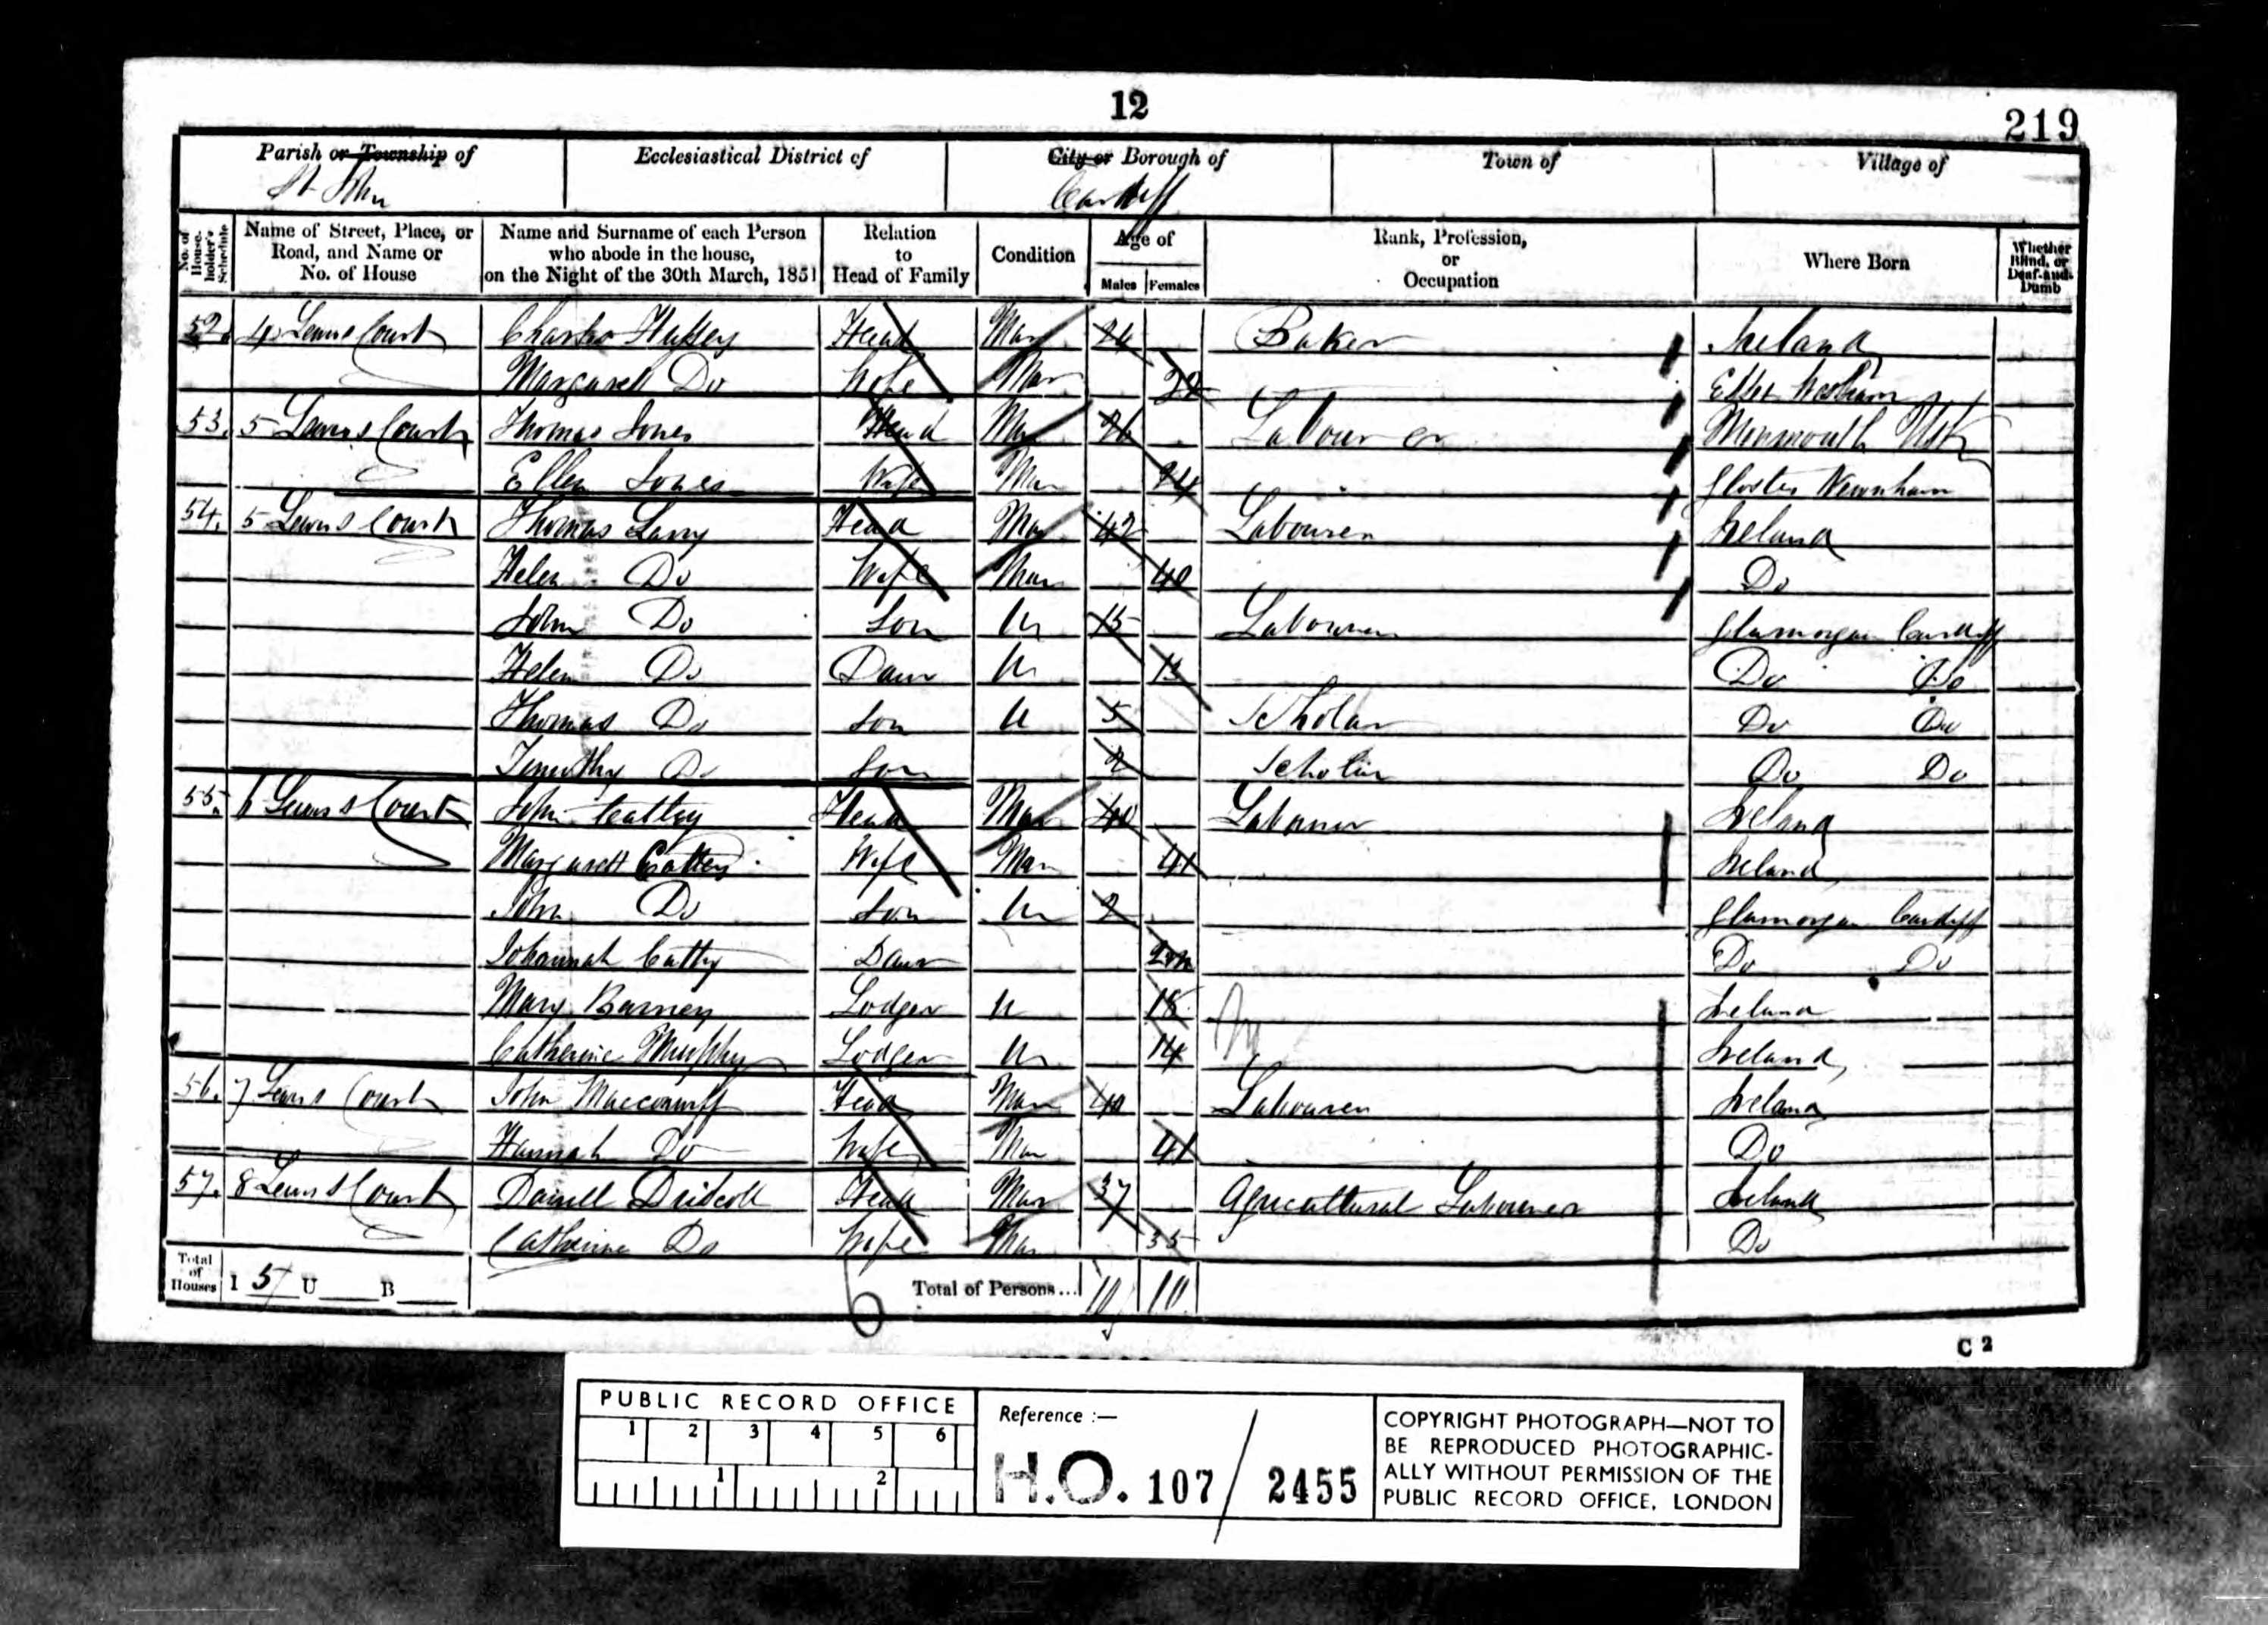 12
219
Parish or Township of
St John
Ecclesiastical District of
City or Borough of
Cardiff
Town of
Village of
No. of House-holder's Schedule
Name of Street, Place, or Road, and Name or No. of House
Name and Surname of each Person who abode in the house, on the Night of the 30th March, 1851
Relation to Head of Family
Condition
Age of
Males Females
Rank, Profession, or Occupation
Where Born
Whether Blind, or Deaf-and-Dumb
52. 4 Lewis Court Charles Head Mar 24 Baker Ireland
Margarett Do Wife Mar 22
53. 5 Lewis Court Thomas Jones Head Mar 26 Labourer Monmouth Usk
Ellen Jones Wife Mar 24 Gloster Newnham
54. 5 Lewis Court Thomas Larry Head Mar 42 Labourer Ireland
Helen Do Wife Mar 40 Do
John Do Son Un 15 Labourer Glamorgan Cardiff
Helen Do Daur Un 13 Do Do
Thomas Do Son U 5 Scholar Do Do
Timothy Do Son 2 Scholar Do Do
55. 6 Lewis Court John Head Mar 40 Labourer Ireland
Margarett Wife Mar 41 Ireland
John Do Son Un 2 Glamorgan Cardiff
Johannah Daur Do Do
Mary Barney Lodger U 18 Ireland
Catherine Murphy Lodger Un 14 Ireland
56. 7 Lewis Court John Head Mar 40 Labourer Ireland
Hannah Do Wife Mar 41 Do
57. 8 Lewis Court Daniell Driscoll Head Mar 37 Agricultural Labourer Ireland
Catherine Do Wife Mar 35 Do
Total of Houses I 5 U B
6
Total of Persons... 10 10
C 2
PUBLIC RECORD OFFICE
1 2 3 4 5 6
1 2
Reference :—
H.O. 107/2455
COPYRIGHT PHOTOGRAPH—NOT TO
BE REPRODUCED PHOTOGRAPHIC-
ALLY WITHOUT PERMISSION OF THE
PUBLIC RECORD OFFICE, LONDON